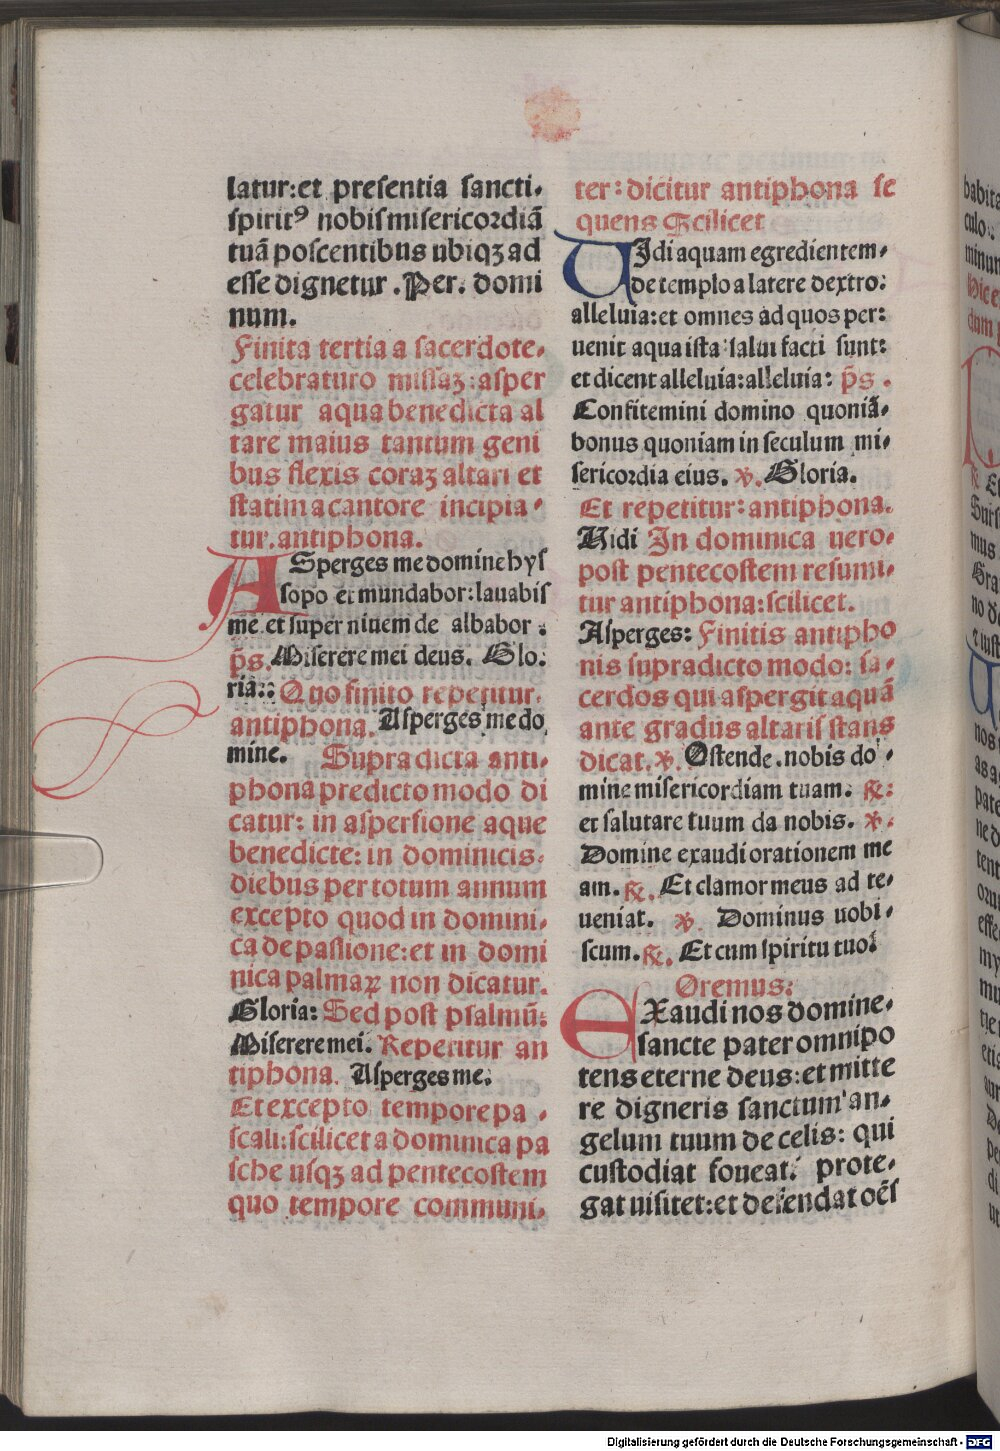 latur:et presentia sancti-
spirit⁹ nobis misericordiā
tuā poscentibus ubiqꝫ ad
esse dignetur. Per. domi
num.
Finita tertia a sacerdote-
celebraturo missaꝫ: asper
gatur aqua benedicta al
tare maius tantum geni
bus flexis coraꝫ altari et
statim a cantore incipia-
tur. antiphona.
ASperges me domine hys
sopo et mundabor: lauabis
me et super niuem de albabor:
p̄s. Miserere mei deus. Glo:
ria:: Quo finito repetitur.
antiphona. Asperges me do
mine. Supradicta anti-
phona predicto modo di
catur: in aspersione aque
benedicte: in dominicis:
diebus per totum annum
excepto quod in domini-
ca de passione: et in domi
nica palmaꝝ non dicatur.
Gloria: Sed post psalmū:
Miserere mei. Repetitur an
tiphona. Asperges me:
Et excepto tempore pa-
scali: scilicet a dominica pa
sche usqꝫ ad pentecostem
quo tempore communi-
ter: dicitur antiphona se
quens Scilicet
UIdi aquam egredientem-
de templo a latere dextro:
alleluia: et omnes ad quos per:
uenit aqua ista salui facti sunt:
et dicent alleluia: alleluia: p̄s.
Confitemini domino quoniā-
bonus quoniam in seculum mi-
sericordia eius. ℣. Gloria.
Et repetitur: antiphona.
Uidi In dominica uero-
post pentecostem resumi-
tur antiphona: scilicet.
Asperges: Finitis antipho
nis supradicto modo: sa-
cerdos qui aspergit aquā
ante gradus altaris stans
dicat. ℣. Ostende. nobis do-
mine misericordiam tuam. ℟:
et salutare tuum da nobis. ℣.
Domine exaudi orationem me
am. ℟. Et clamor meus ad te-
ueniat. ℣. Dominus uobi-
scum. ℟. Et cum spiritu tuo:
Oremus:
EXaudi nos domine-
sancte pater omnipo
tens eterne deus: et mitte
re digneris sanctum an-
gelum tuum de celis: qui
custodiat foueat: prote-
gat uisitet: et defendat oēs
Digitalisierung gefördert durch die Deutsche Forschungsgemeinschaft - DFG